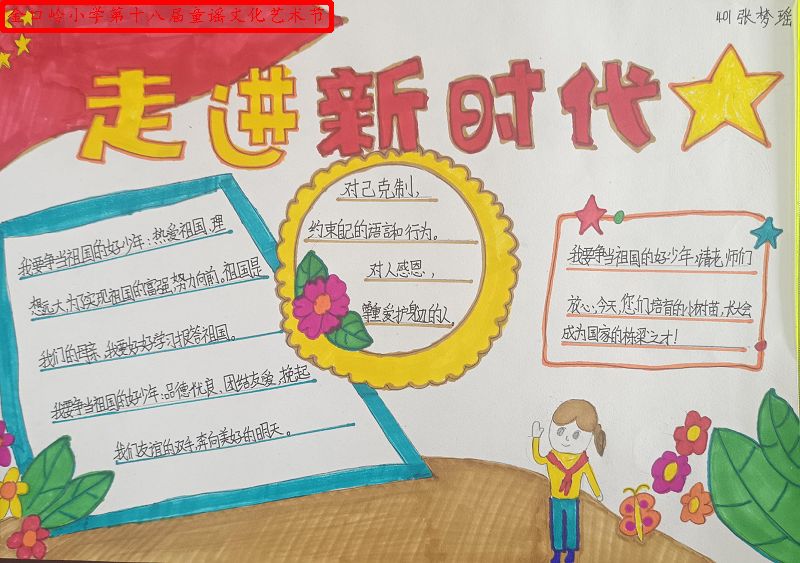 金口岭小学第十八届童谣文化艺术节
401 张梦瑶
走进新时代
我要争当祖国的好少年:热爱祖国、理
想远大,为了实现祖国的富强,努力向前。祖国是
我们的母亲,我要好好学习报答祖国。
我要争当祖国的好少年:品德优良、团结友爱,挽起
我们友谊的双手,奔向美好的明天。
对己克制,
约束自己的语言和行为。
对人感恩,
尊重、爱护身边的人。
我要争当祖国的好少年,请老师们
放心,今天,您们培育的小树苗,长大会
成为国家的栋梁之才!